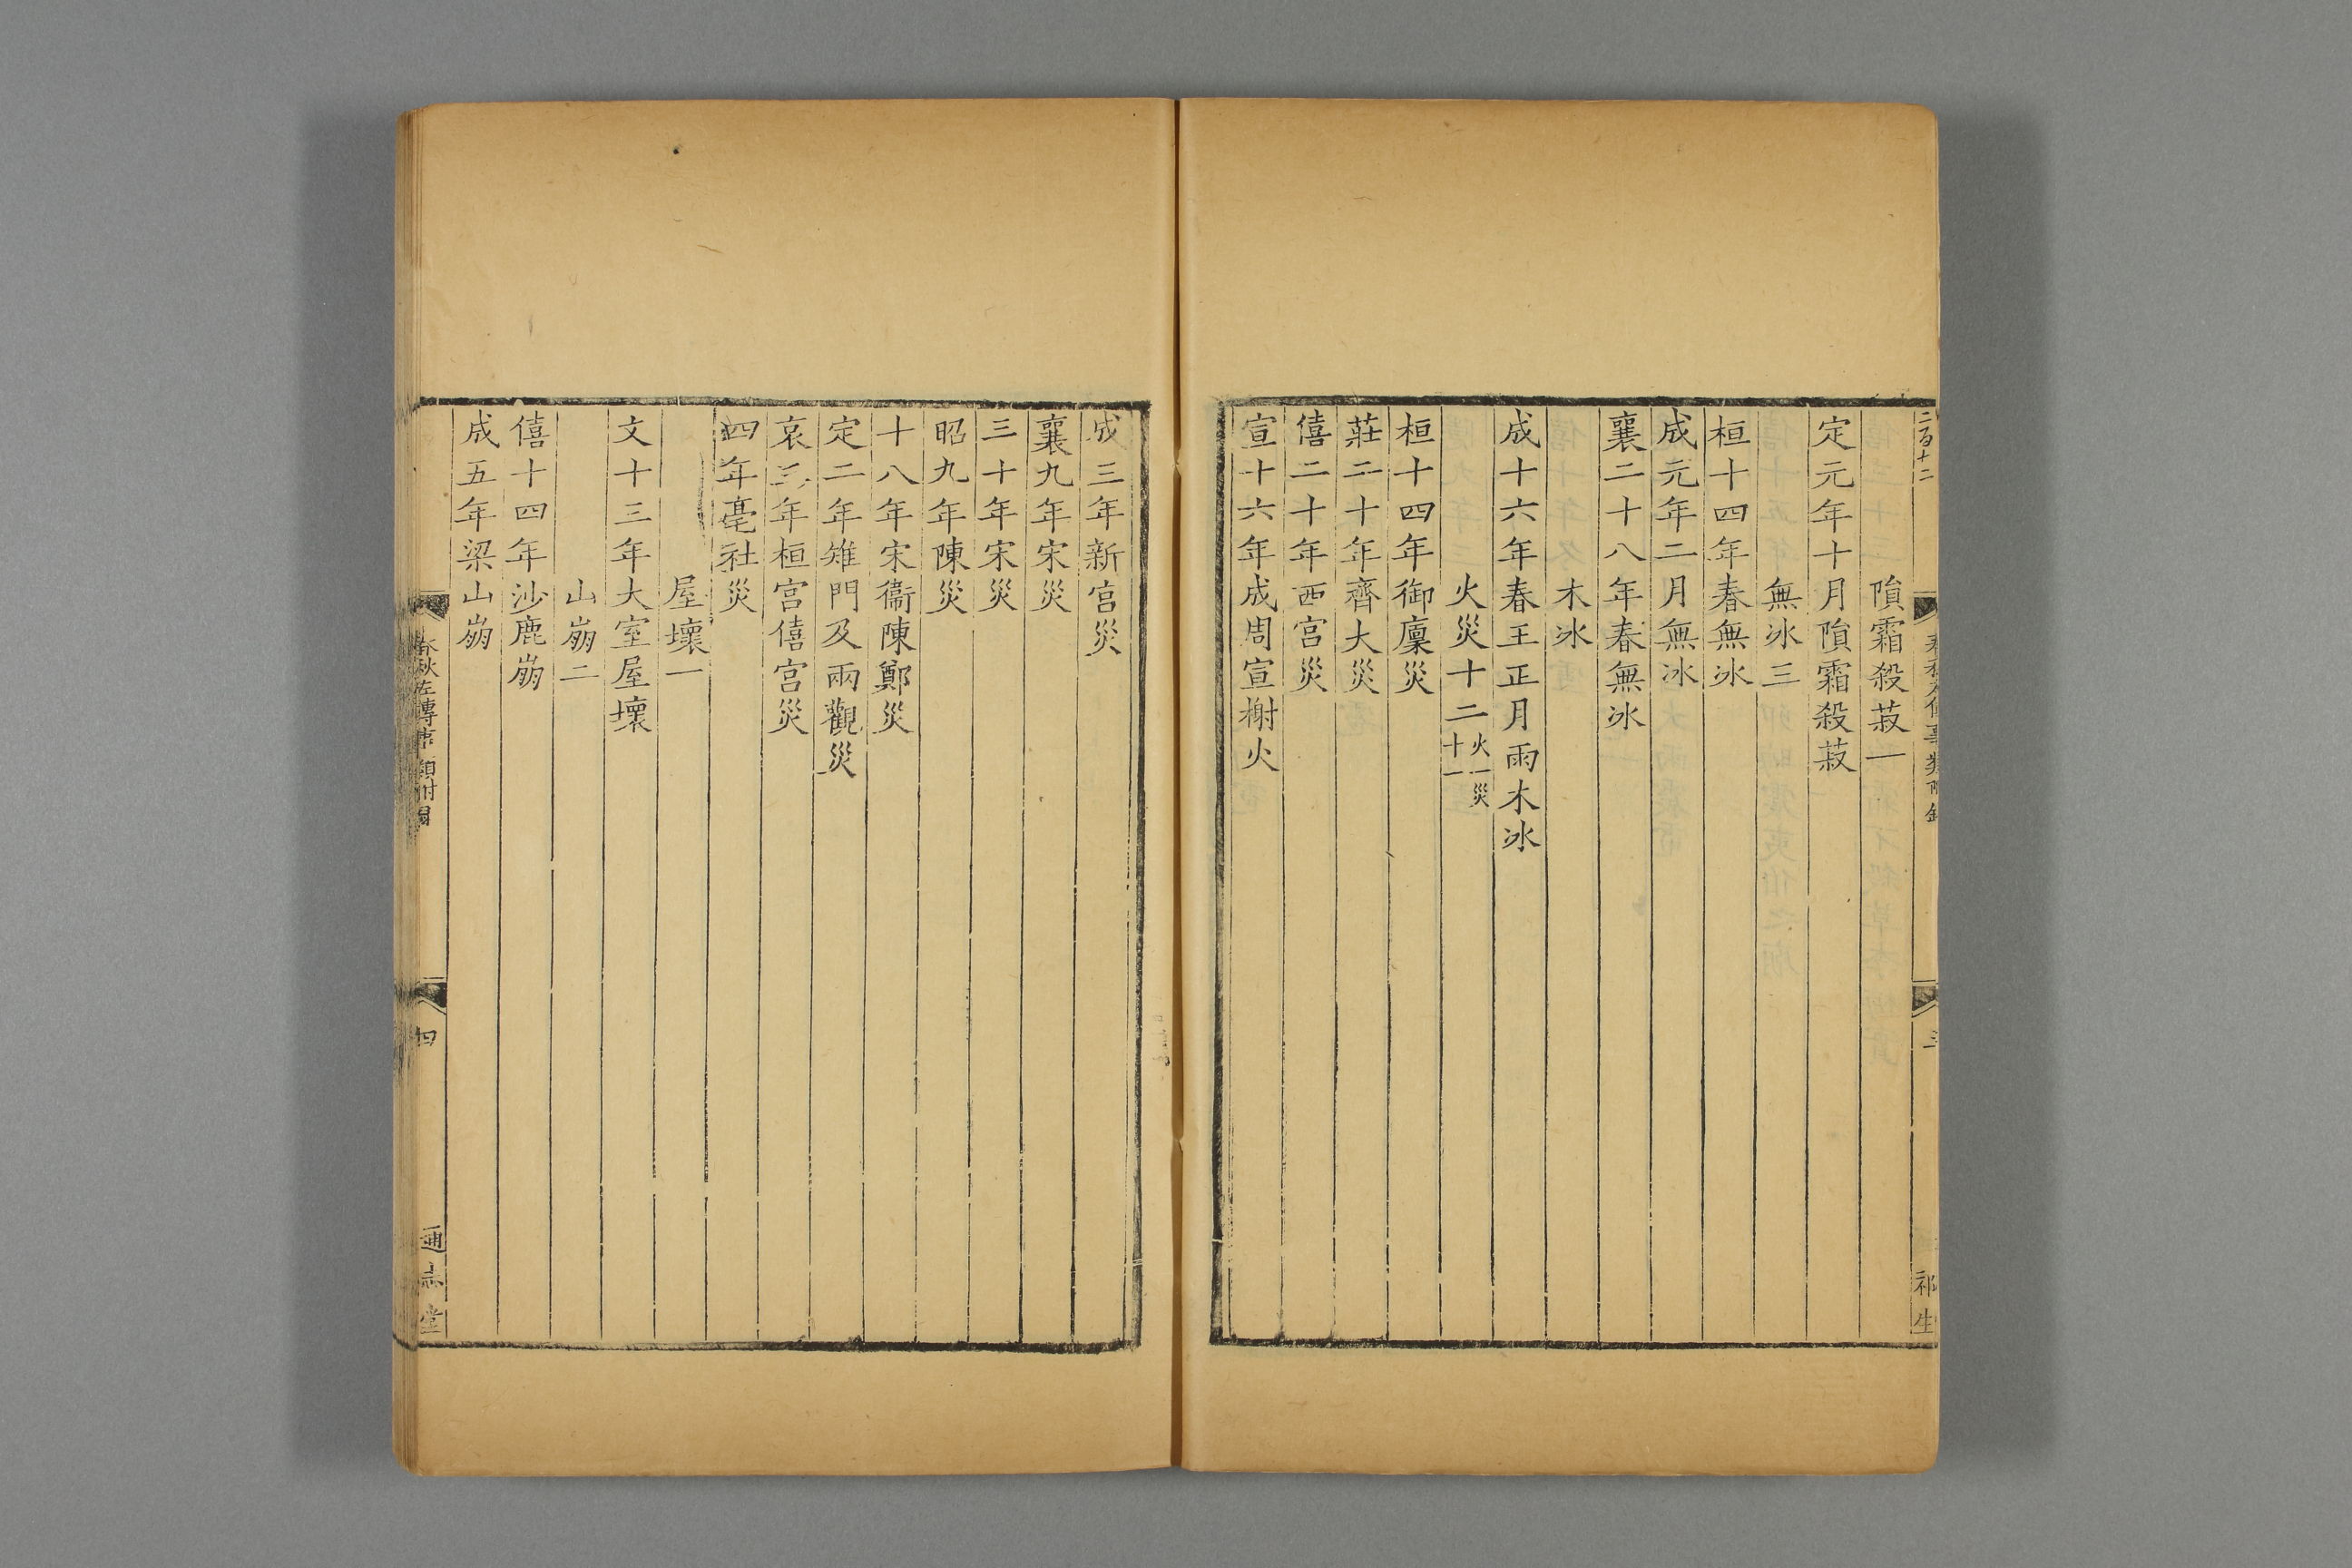 隕霜殺菽一
定元年十月隕霜殺菽
無冰三
桓十四年春無冰
成元年二月無冰
襄二十八年春無冰
木冰
成十六年春王正月雨木冰
火災十二火一災十一
桓十四年御廩災
莊二十年齊大災
僖二十年西宮災
宣十六年成周宣榭火
成三年新宮災
襄九年宋災
三十年宋災
昭九年陳災
十八年宋衞陳鄭災
定二年雉門及兩觀災
哀三年桓宮僖宮災
四年亳社災
屋壞一
文十三年大室屋壞
山崩二
僖十四年沙鹿崩
成五年梁山崩
春秋左傳事類附
四
通志堂